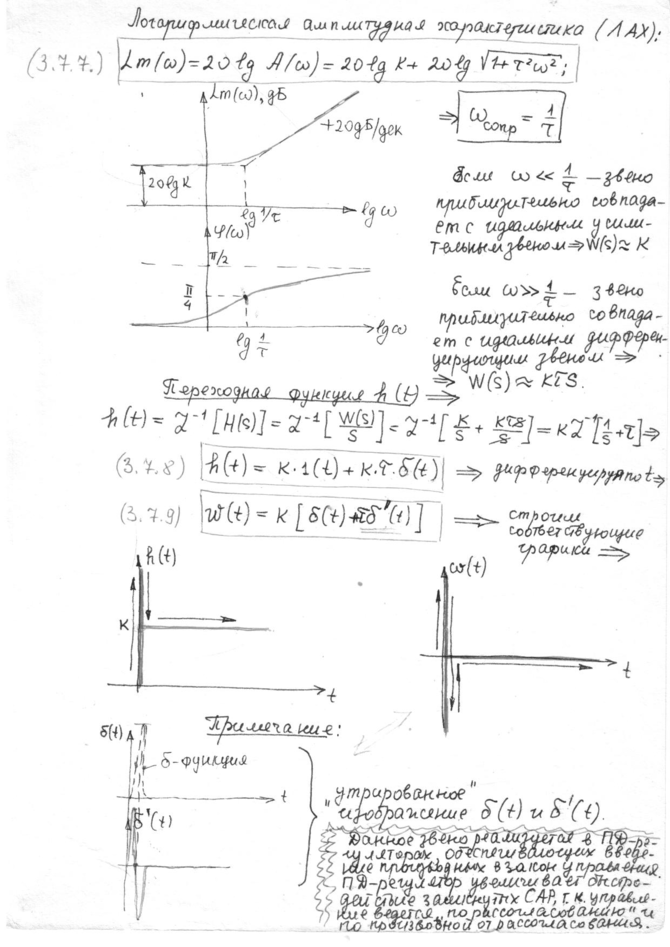 Логарифмическая амплитудная характеристика (ЛАХ):
(3.7.7.) Lm(ω) = 20 lg A(ω) = 20 lg K + 20 lg √(1+τ²ω²);
Lm(ω), дБ
+20дБ/дек
20 lg K
lg 1/τ
lg ω
⇒ ω сопр = 1/τ
Если ω << 1/τ – звено
приблизительно совпада-
ет с идеальным усили-
тельным звеном ⇒ W(s) ≈ K
φ(ω)
π/2
π/4
lg 1/τ
lg ω
Если ω >> 1/τ – звено
приблизительно совпада-
ет с идеальным дифферен-
цирующим звеном ⇒
⇒ W(s) ≈ Kτs.
Переходная функция h(t) ⇒
h(t) = L⁻¹[H(s)] = L⁻¹[W(s)/s] = L⁻¹[K/s + Kτs/s] = K L⁻¹[1/s + τ] ⇒
(3.7.8) h(t) = K·1(t) + K·τ·δ(t) ⇒ дифференцируя по t ⇒
(3.7.9) w(t) = K[δ(t) + τδ'(t)] ⇒ строим
соответствующие
графики ⇒
h(t)
K
t
ω(t)
t
Примечание:
δ(t)
δ-функция
t
δ'(t)
"утрированное"
изображение δ(t) и δ'(t).
Данное звено реализуется в ПД-ре-
гуляторах, обеспечивающих введе-
ние производных в закон управления.
ПД-регулятор увеличивает быстро-
действие замкнутых САР, т.к. управле-
ние ведется "по рассогласованию" и
по производной от рассогласования.